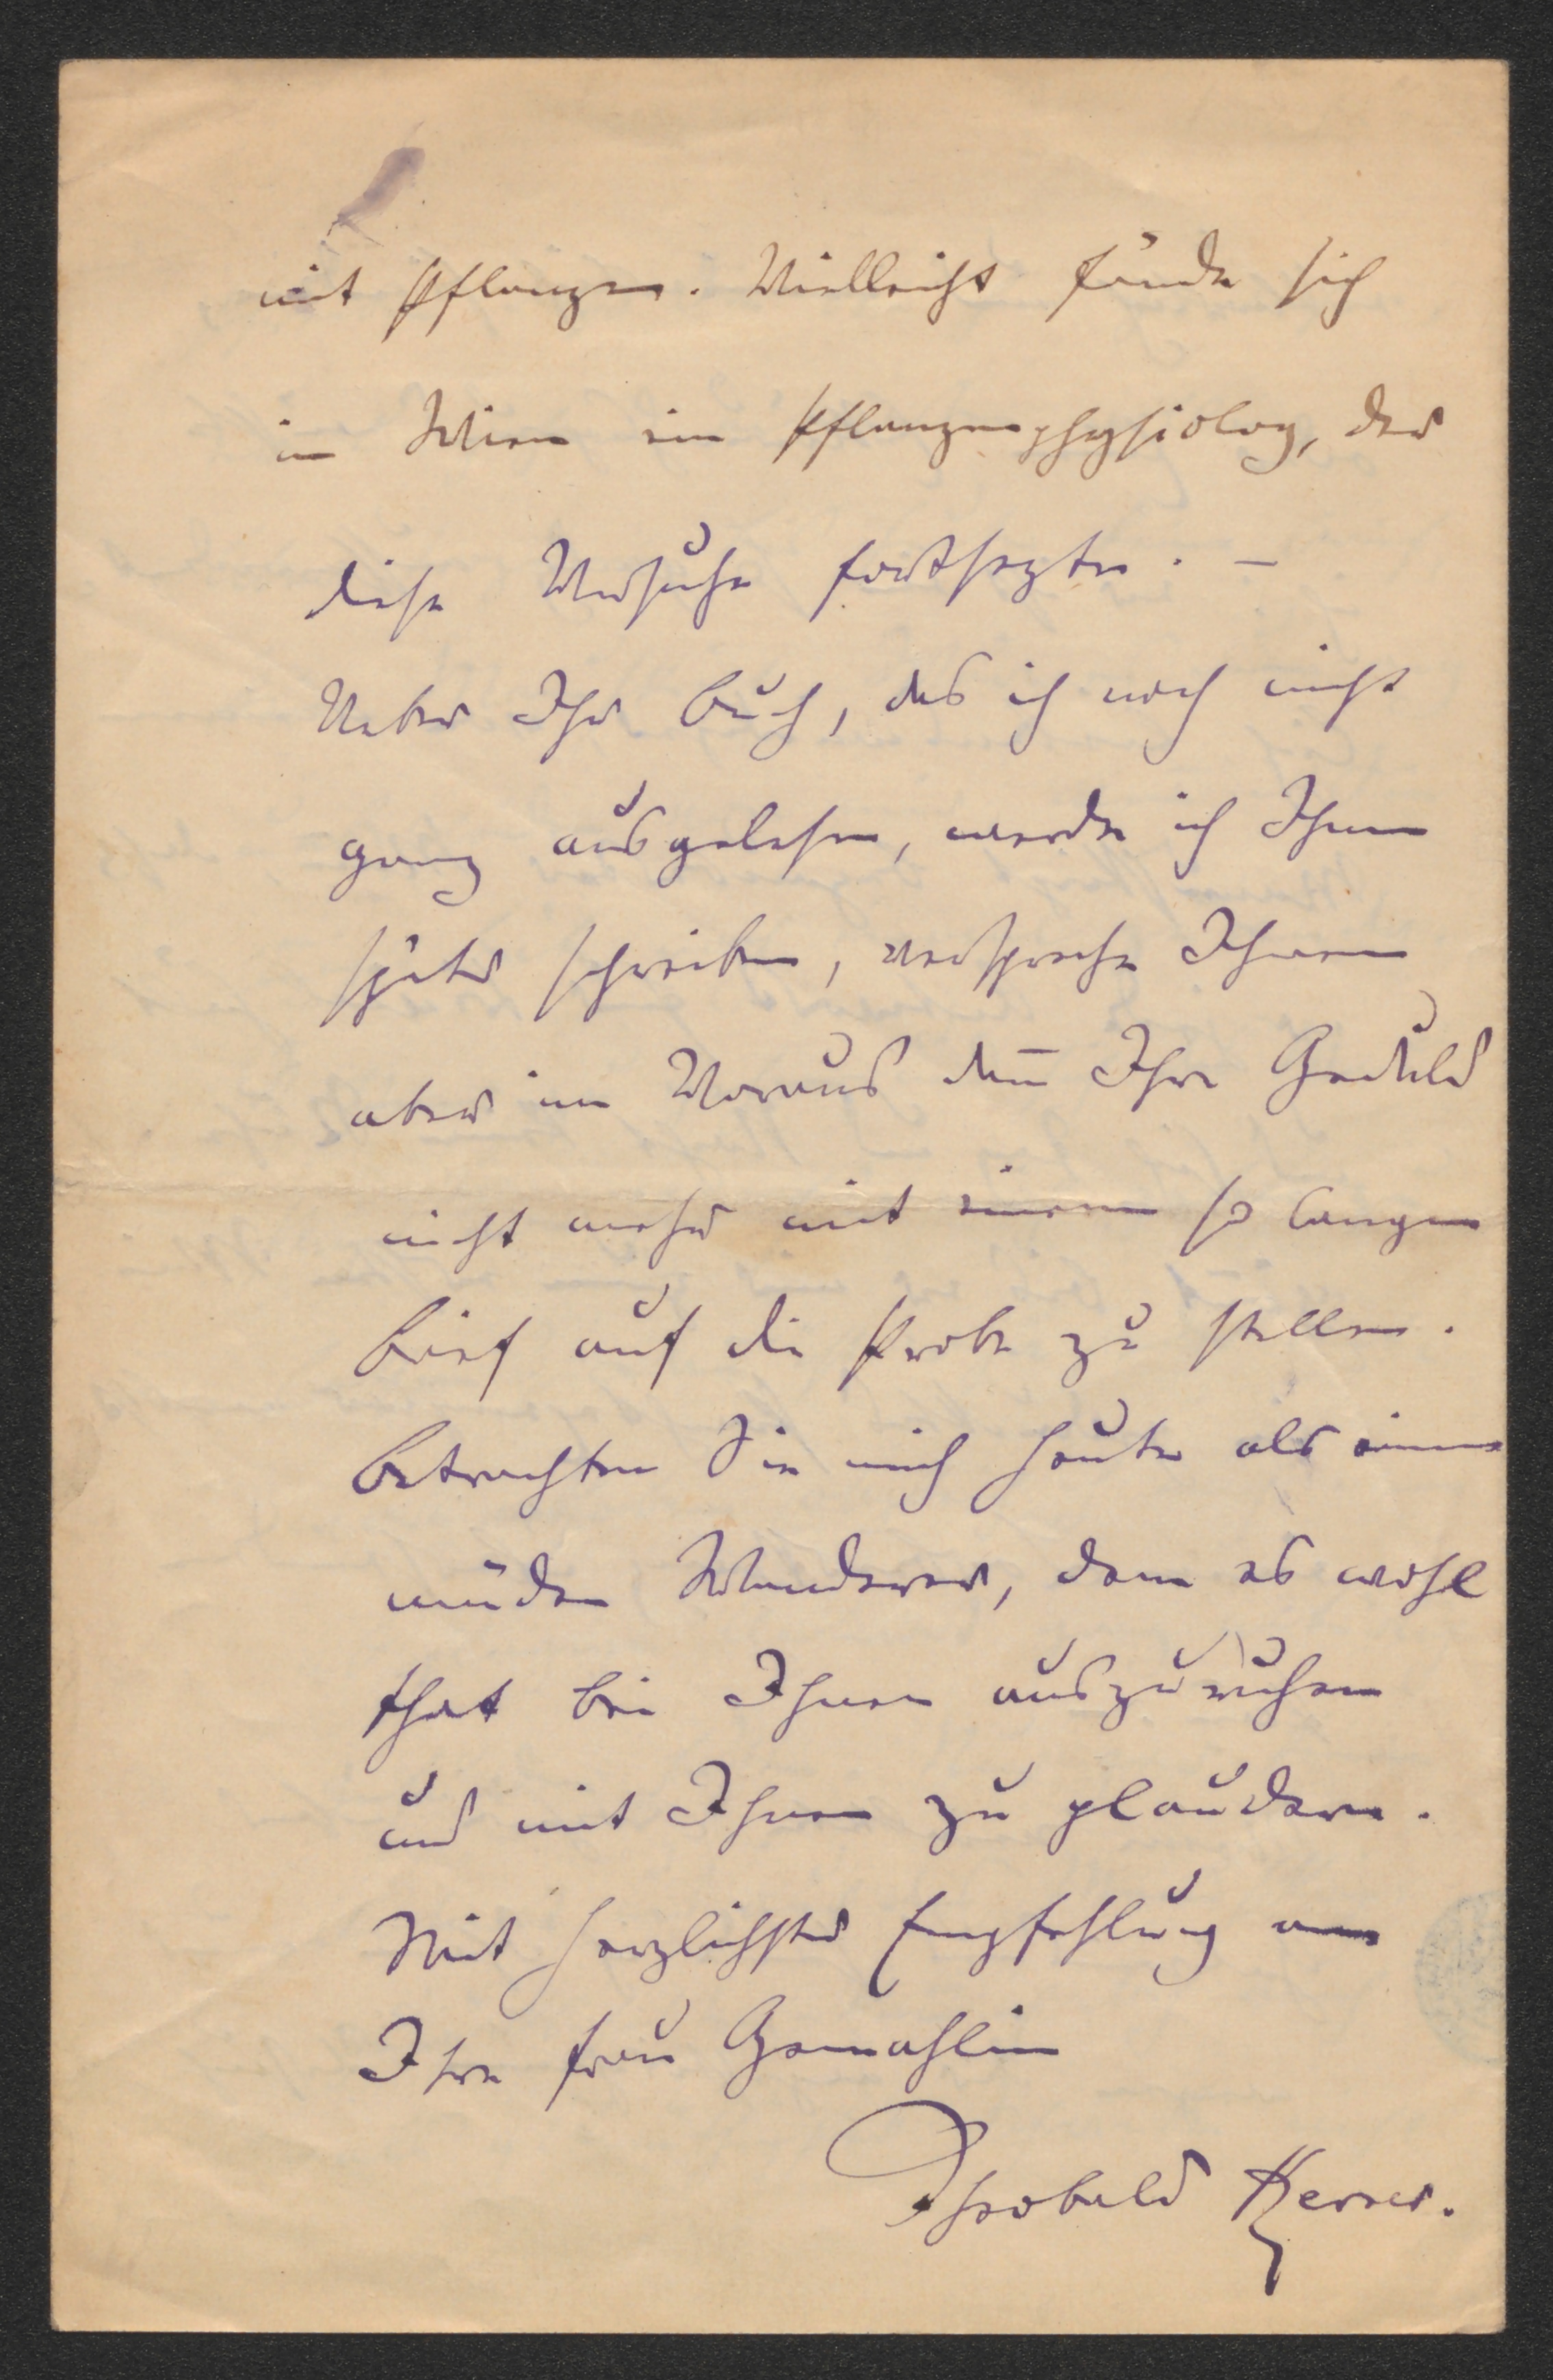 mit Pflanzen. Vielleicht fände sich
in Wien ein Pflanzenphysiolog, der
diese Versuche fortsezte. –
Ueber Ihr Buch, das ich noch nicht
ganz ausgelesen, werde ich Ihnen
später schreiben, verspreche Ihnen
aber im Voraus dan̅ Ihre Geduld
nicht mehr mit einem so langen
Brief auf die Probe zu stellen.
Betrachten Sie mich heute als einen
müden Wanderer, dem es wohl
that bei Ihnen auszuruhen
und mit Ihnen zu plaudern.
Mit herzlichster Empfehlung an
Ihre Frau Gemahlin
Theobald Kerner.